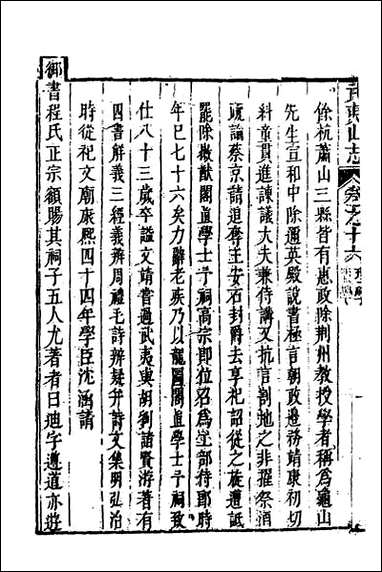 武夷山志 卷之十六
餘杭蕭山三縣皆有惠政除荆州教授學者稱爲龜山
先生宣和中除邇英殿說書極言朝政邊務靖康初切
料童貫進諫議大夫兼侍講又抗言割地之非擢祭酒
疏論蔡京請追奪王安石封爵去享祀詔從之旋遭詆
罷除徽猷閣直學士予祠高宗即位召爲工部侍郎時
年巳七十六矣力辭老疾乃以龍圖閣直學士予祠致
仕八十三歲卒諡文靖嘗過武夷與胡劉諸賢游著有
四書解義三經義辨周禮毛詩辨疑并詩文集明弘治
時從祀文廟康熙四十四年學臣沈涵請
御書程氏正宗額賜其祠子五人尤著者曰迪字遵道亦遊